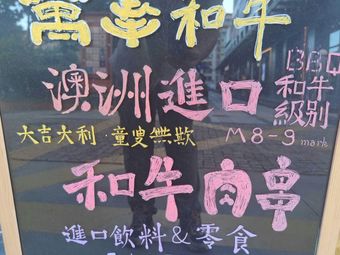 萬幸和牛
澳洲進口
BBQ
和牛
級别
大吉大利·童叟無欺
M8-9 mark
和牛肉串
進口飲料&零食